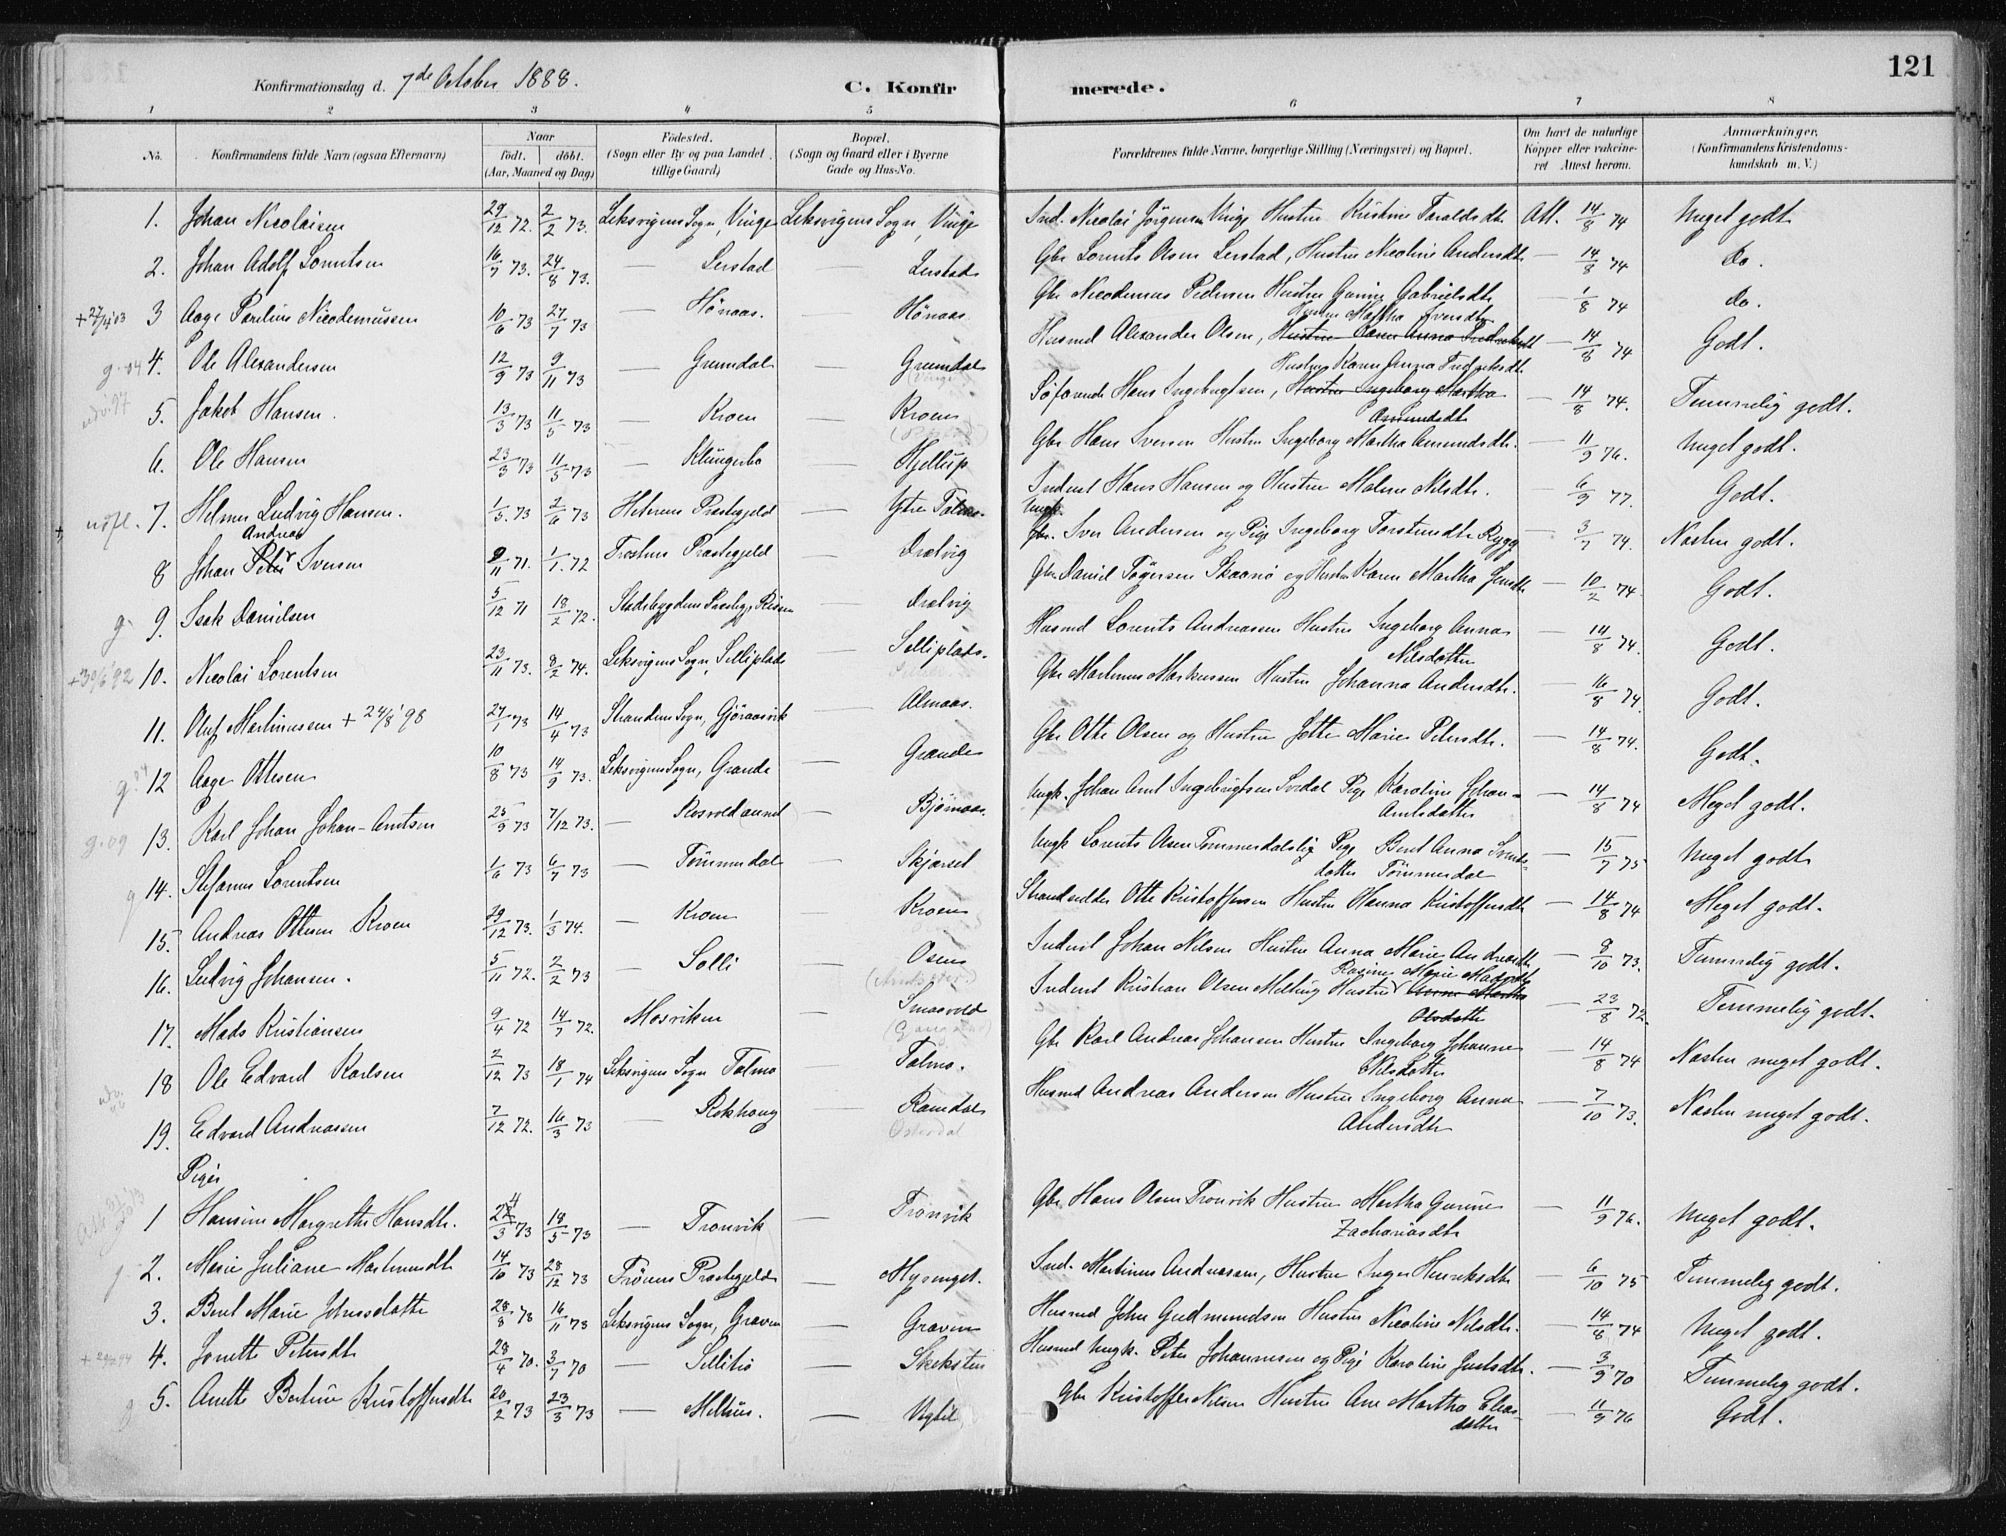 121
Konfirmationsdag d. 7de October 1888. C. Konfirmerede.
1 2 3 4 5 6 7 8
No. Konfirmandens fulde Navn (ogsaa Efternavn) Naar født. døbt. (Aar, Maaned og Dag) Fødested. (Sogn eller By og paa Landet tillige Gaard) Bopæl. (Sogn og Gaard eller i Byerne Gade og Hus-No. Forældrenes fulde Navne, borgerlige Stilling (Næringsvei) og Bopæl. Om havt de naturlige Kopper eller vakcineret Attest herom. Anmærkninger. (Konfirmandens Kristendomskundskab m. V.)
1. Johan Nicolaisen 29/12 72. 2/2 73. Leksvigens Sogn, Vinge Leksvigens Sogn, Vinge Ind. Nicolai Jörgensen Vinge Hustru Kristine Taraldsdtr Att. 14/8 74 Meget godt
2. Johan Adolf Lorentsen 16/7 73. 24/8 73. — Lerstad — Lerstad Gbr Lorents Olsen Lerstad, Hustru Nicoline Andersdtr — 14/8 74 Do.
3 Aage Parelius Nicodemussen 10/6 73 27/7 73 — Hönaas. — Hönaas Gbr Nicodemus Pedersen Hustru Gurine Gabrielsdtr — 1/8 74 Do.
g. 04 4. Ole Alexandersen 12/9 73 9/11 73 — Grumdal — Grumdal Husmd Alexander Olsen, Hustru Karen Anna Fredriksdtr — 14/8 74 Godt.
Hustru Martha Iversdtr
5. Jakob Hansen. 13/3 73 11/5 73 — Kroen — Kroen Söfarende Hans Ingebrigtsen, Hustru Ingeborg Martha Amundsdtr — 14/8 74. Temmelig godt.
Hustru Karen Anna Fredriksdtr
6. Ole Hansen 23/3 73 11/5 73 — Klungerbo — Hjellup Gbr Hans Iversen Hustru Ingeborg Martha Amundsdtr. — 11/9 76. Meget godt.
utfl. 7. Helmer Ludvig Hansen. 1/5. 73 2/6 73 Hiterens Præstegjeld — Ytre Talmo. Inderst Hans Hansen og Hustru Malene Nilsdtr. — 6/9 77. Godt.
8 Johan Peter Andreas Iversen 9/11 71. 1/1. 72 Frostens Præstegjeld — Dralvig Ungk. Iver Andersen og Pige Ingeborg Torstensdtr Rygg — 3/7 74. Næsten godt.
g. 9. Isak Danielsen 5/12 71 18/2 72. Stadsbygdens Præstegj. Rissen — Dralvig Gbr Daniel Tögersen Skaanö og Hustru Karen Martha Jensdtr — 10/2 74. Godt.
+30/6 92 10. Nicolai Lorentsen 23/11 73. 8/2 74. Leksvigens Sogn, Selliplads — Selliplads. Husmd Lorents Andreassen Hustru Ingeborg Anna Nilsdatter — 14/8 74. Godt.
11. Oluf Martinussen + 24/8 '98 27/1 73 14/4 73 Strandens Sogn, Gjöraasvik — Almaas. Gbr Martinus Markussen Hustru Johanna Andersdtr. — 16/8 74. Godt.
g. 04 12 Aage Ottesen 10/8 73 14/9 73. Leksvigens Sogn, Grande — Grande Gbr Otte Olsen og Hustru Jette Marie Petersdtr. — 14/8 74. Godt.
g. 09 13. Karl Johan Johan-Arntsen 25/9 73 7/12 73. — Rosvoldaunet — Björnaas. Ungk. Johan Arnt Ingebrigtsen Svedal Pige Karoline Johan-Arntsdatter — 14/8 74 Meget godt.
g 14. Stefanus Lorentsen 1/6 73 6/7 73 — Tömmerdal — Skjærset Ungk Lorents Olsen Tommerdalslie Pige Beret Anna Svendsdatter Tömmerdal — 15/7 75 Meget godt
15. Andreas Ottesen Kroen 29/12 73. 1/3 74. — Kroen — Kroen Strandsidder Otte Kristoffersen Hustru Hanna Kristoffersdtr — 14/8 74 Meget godt.
16. Ludvig Johansen. 5/11 72. 2/2 73 — Solli — Osen Inderst Johan Nilsen Hustru Anna Marie Andreasdtr — 8/10 73. Temmelig godt.
17. Mads Kristiansen 9/4 72 14/7 72. Mosviken — Smaavold Inderst Kristian Olsen Melting Hustru Anne Martha Olsdatter Rasine Marie Madsdtr — 23/8 72. Temmelig godt.
18 Ole Edvard Karlsen 2/12 73 18/1 74 Leksvigens Sogn Talmo — Talmo. Gbr Karl Andreas Johansen Hustru Ingeborg Johanne Nilsdatter — 14/8 74 Næsten meget godt.
19. Edvard Andreassen 7/12 72. 16/3 73 — Rokhaug — Ramdal Osterdal Husmd Andreas Andersen Hustru Ingeborg Anna Andersdtr — 7/10 73. Næsten meget godt.
Piger
1 Hansine Margrethe Hansdtr. 24/3 73 18/5 73 — Tronvik — Trönvik Gbr Hans Olsen Tronvik Hustru Martha Gurine Zachariasdtr — 11/9 76. Meget godt.
g 2. Marie Juliane Martinusdtr 14/10 73 28/12 73 Fröiens Præstegjeld — Mysinget. Ind. Martinus Andreassen, Hustru Inger Henriksdtr — 6/10 75 Temmelig godt.
3. Beret Marie Johnsdatter 28/8 73 16/11 73 Leksvigens Sogn, Graven — Graven Husmd John Gudmundsen Hustru Nicoline Nilsdtr. — 14/8 74 Meget godt.
4. Jonette Petersdtr 28/4 70. 3/7 70 — Sellitrö — Skoksten Husmd Ungk. Peter Johannesen og Pige Karoline Justsdtr. — 3/9 70 Temmelig godt.
g 5. Anette Bertine Kristoffersdtr 20/2 73 23/3 73 — Melhus. — Vaglie Gbr Kristoffer Nilsen Hustru Ane Martha Eliasdatter — 11/9 76 Godt.